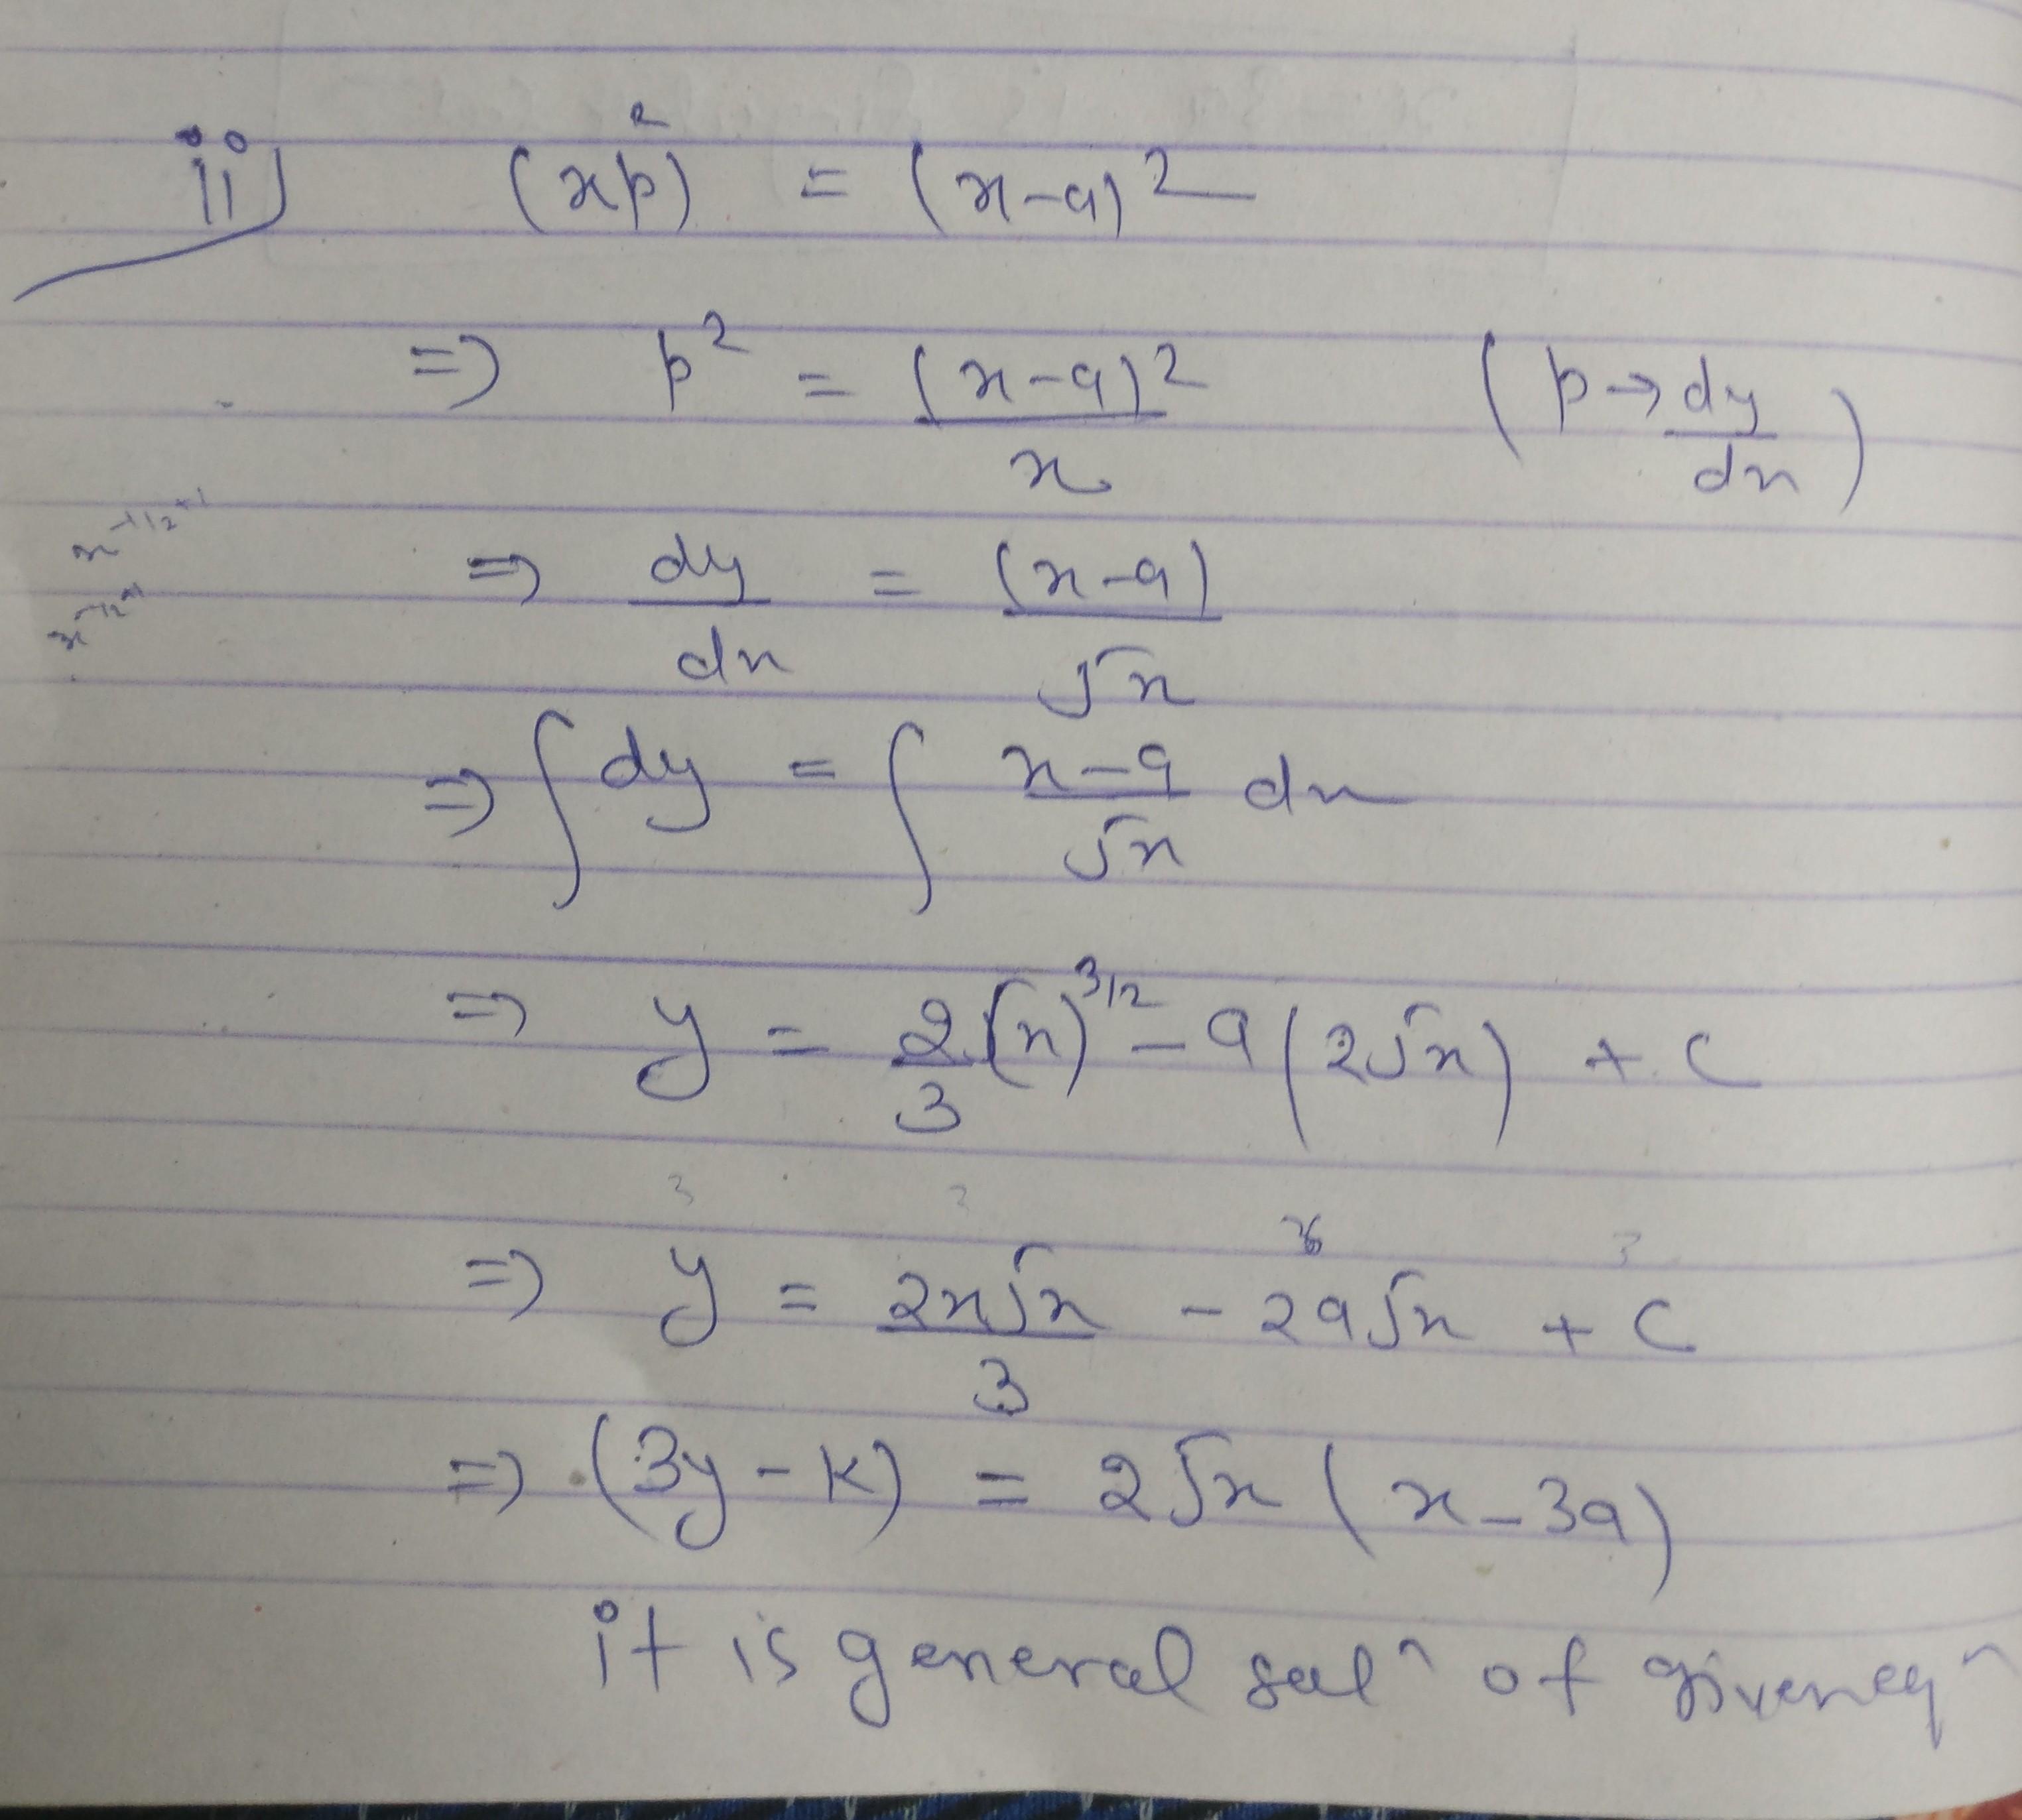 ii) (xp²) = (x-a)²
=> p² = (x-a)²/x (p→dy/dx)
x^(-1/2+1)
=> dy/dx = (x-a)/√x
=> ∫dy = ∫ (x-a)/√x dx
=> y = 2/3 (x)^(3/2) - a(2√x) + c
=> y = 2x√x/3 - 2a√x + c
=> (3y-k) = 2√x (x-3a)
it is general solⁿ of given eqⁿ